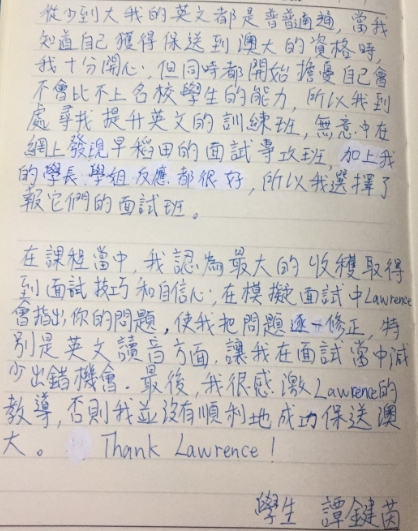 從少到大我的英文都是普普通通,當我
知道自己獲得保送到澳大的資格時,
我十分開心,但同時都開始擔憂自己會
不會比不上名校學生的能力,所以我到
處尋找提升英文的訓練班,無意中在
網上發現早稻田的面試專攻班,加上我
的學長學姐反應都很好,所以我選擇了
報它們的面試班。
在課程當中,我認為最大的收穫取得
到面試技巧和自信心,在模擬面試中Lawrence
會指出你的問題,使我把問題逐一修正,特
別是英文讀音方面,讓我在面試當中減
少出錯機會。最後,我很感激Lawrence的
教導,否則我並沒有順利地成功保送澳
大。 Thank Lawrence!
學生 譚鍵茵